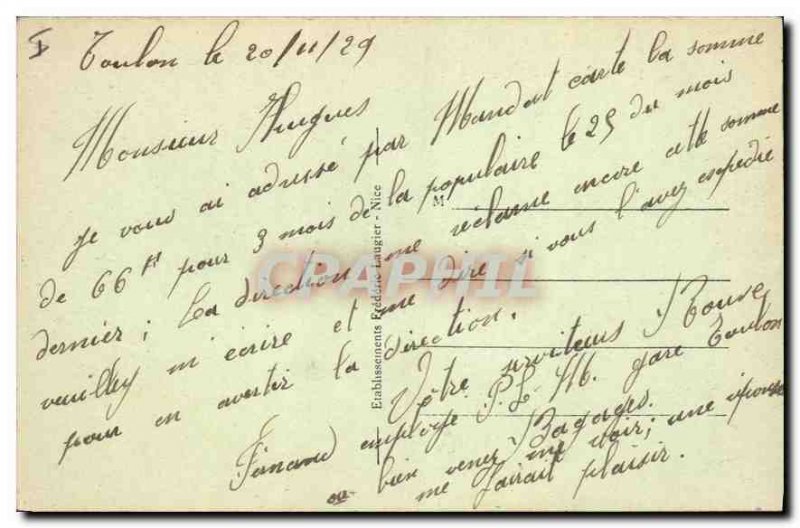 Toulon le 20/11/29
Monsieur Hugues
je vous ai adressé par Mandat carte la somme
de 66 frs pour 3 mois de la populaire le 25 du mois
dernier; la direction me réclame encore cette somme
veuillez m'écrire et me dire si vous l'avez expédié
pour en avertir la direction.
Votre serviteur
employé P.L.M. gare Toulon
Bagages.
ou bien venez me voir; une réponse
me fairait plaisir.
M
Etablissements Frédéric Laugier - Nice
CPAPHIL